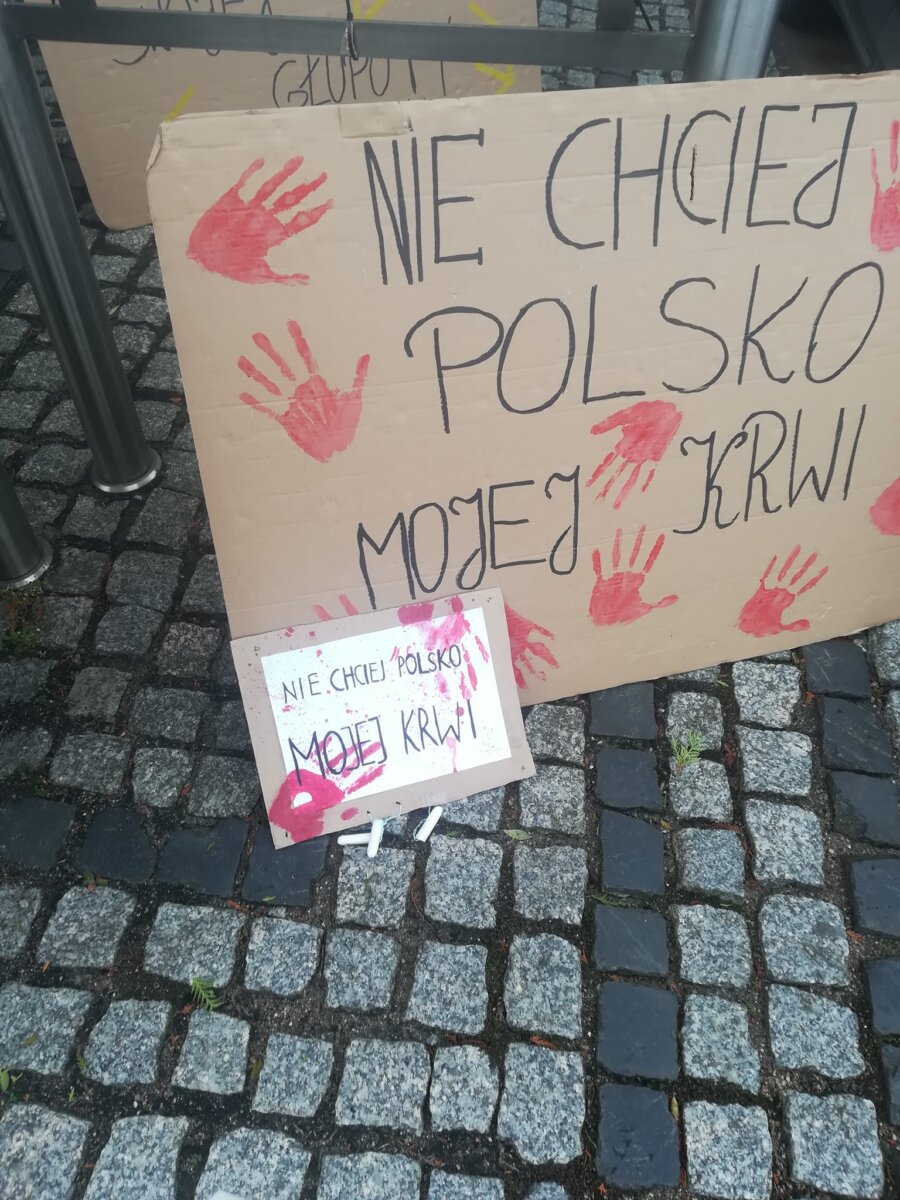 GŁUPOTY
NIE CHCIEJ
POLSKO
MOJEJ KRWI
NIE CHCIEJ POLSKO
MOJEJ KRWI